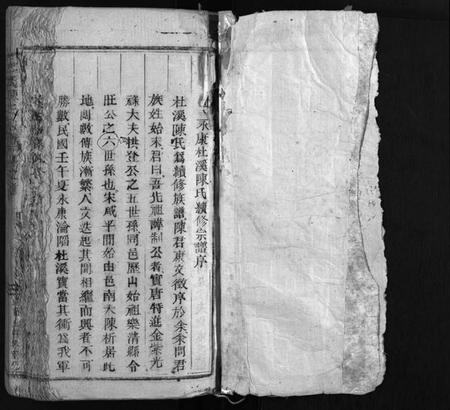 永康杜溪陳氏續修宗譜序
杜溪陳氏爲續修族譜陳君東交徵序於余余問君
族姓始末君曰吾先祖諱制公者實唐特進金紫光
祿大夫拱登公之五世孫同邑歷山始祖樂清縣令
旺公之六世孫也宋咸平間始由邑南大陳析居此
地閥敎傳族漸繁人文迭起其間相繼而興者不可
勝數民國壬午夏永康淪陷杜溪實當其衝爲我軍